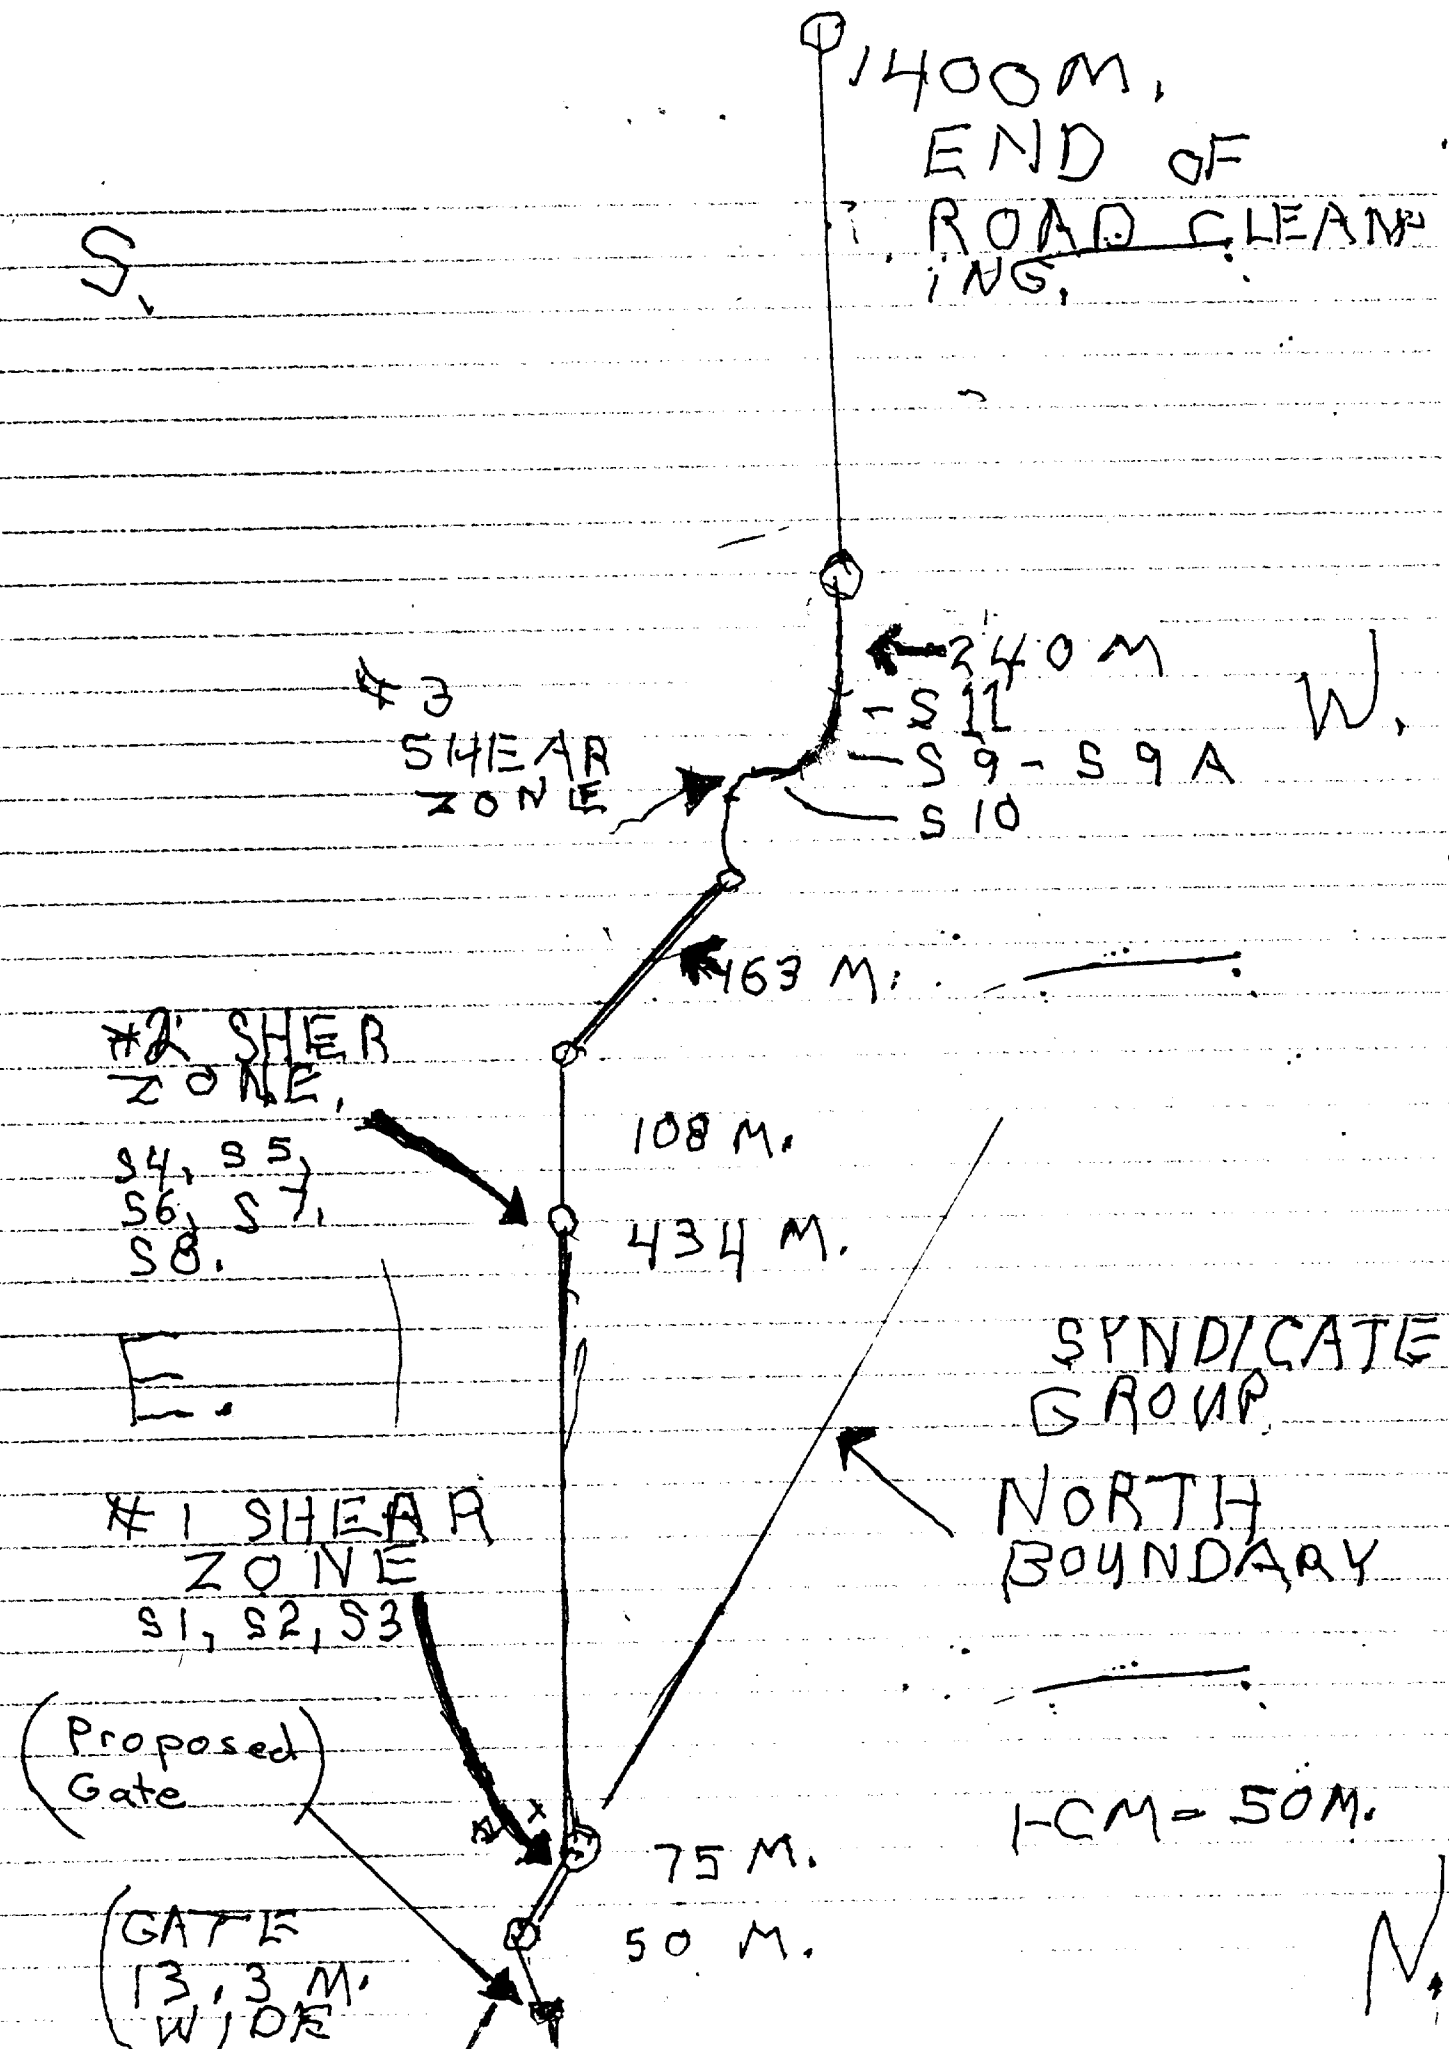 1400 M.
END OF
ROAD CLEAN
ING.
S.
240 M
W.
S 11
#3
SHEAR
ZONE
S 9 - S 9 A
S 10
163 M.
#2 SHER
ZONE.
108 M.
S4, S5,
S6, S7,
S8.
434 M.
E.
SYNDICATE
GROUP
NORTH
BOUNDARY
#1 SHEAR
ZONE
S1, S2, S3
(Proposed
Gate)
1-CM = 50M.
75 M.
50 M.
(GATE
13.3 M.
WIDE
N.